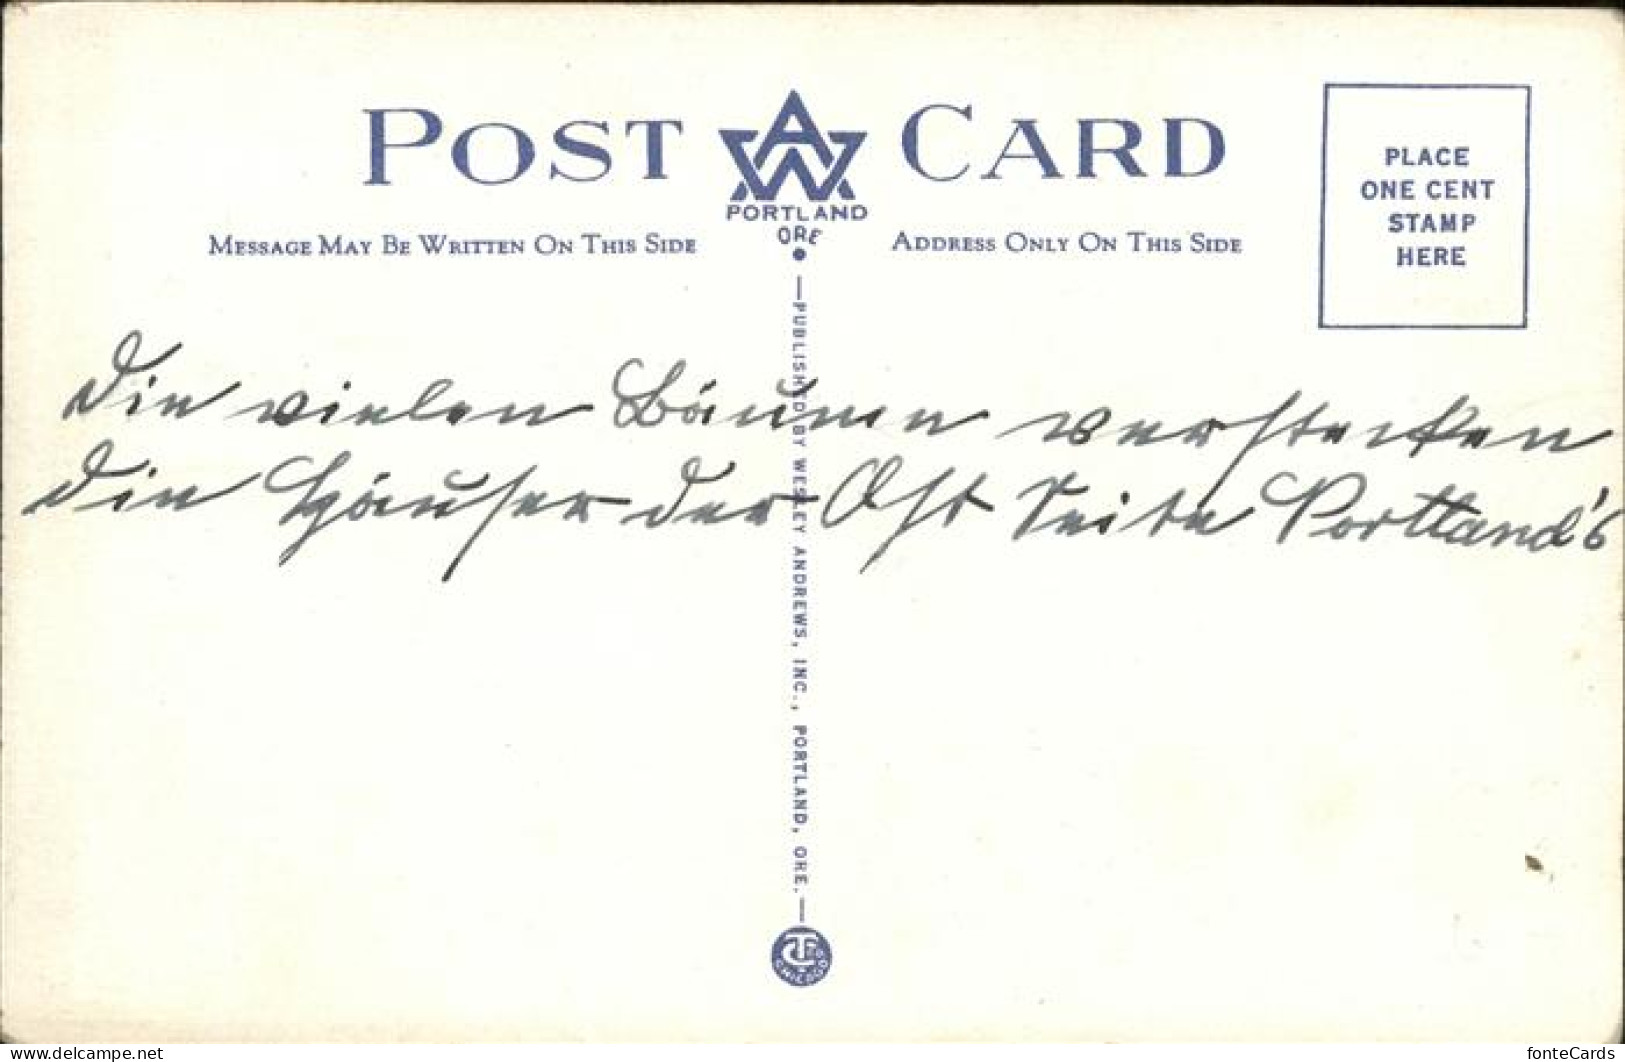 POST CARD
AW
PORTLAND
ORE
PLACE
ONE CENT
STAMP
HERE
MESSAGE MAY BE WRITTEN ON THIS SIDE
ADDRESS ONLY ON THIS SIDE
Die vielen Bäume verstecken
die Häuser der Ost Seite Portland's
—PUBLISHED BY WESLEY ANDREWS, INC., PORTLAND, ORE.—
CT
CHICAGO
www.delcampe.net
fonteCards